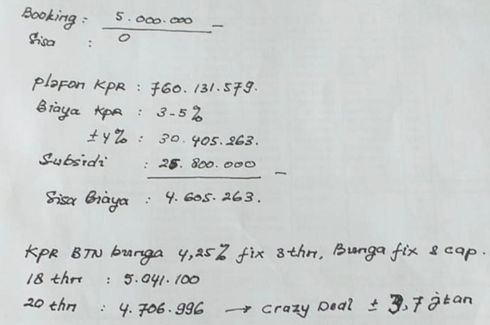 Booking : 5.000.000 —
Sisa : 0
plafon KPR : 760.131.579.
Biaya KPR : 3-5%
± 4% : 30.405.263.
Subsidi : 25.800.000 —
Sisa Biaya : 4.605.263.
KPR BTN bunga 4,25% fix 3thn, Bunga fix & cap.
18 thn : 5.041.100
20 thn : 4.706.996 → Crazy Deal ± 3,7 jtan